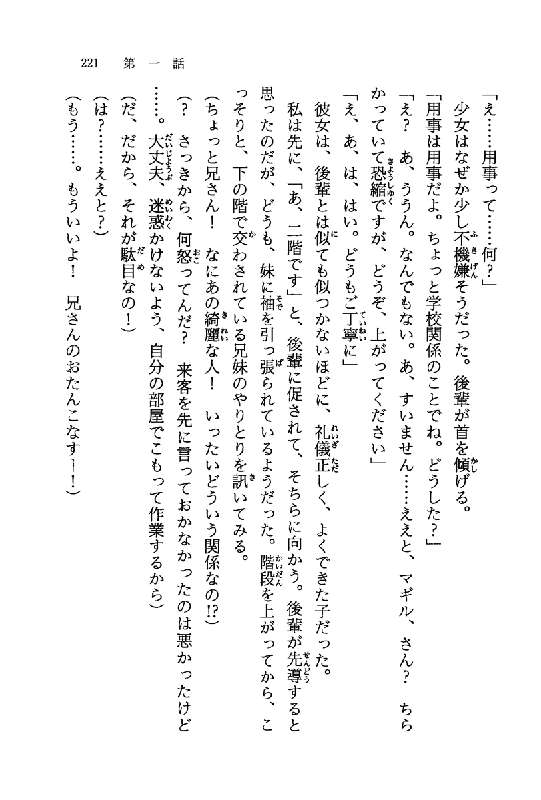 221　第一話
「え……用事って……何？」
　少女はなぜか少し不機嫌そうだった。後輩が首を傾げる。
「用事は用事だよ。ちょっと学校関係のことでね。どうした？」
「え？　あ、ううん。なんでもない。あ、すいません……ええと、マギル、さん？　ちら
かっていて恐縮ですが、どうぞ、上がってください」
「え、あ、は、はい。どうもご丁寧に」
　彼女は、後輩とは似ても似つかないほどに、礼儀正しく、よくできた子だった。
　私は先に、「あ、二階です」と、後輩に促されて、そちらに向かう。後輩が先導すると
思ったのだが、どうも、妹に袖を引っ張られているようだった。階段を上がってから、こ
っそりと、下の階で交わされている兄妹のやりとりを訊いてみる。
（ちょっと兄さん！　なにあの綺麗な人！　いったいどういう関係なの!?）
（？　さっきから、何怒ってんだ？　来客を先に言っておかなかったのは悪かったけど
……。大丈夫、迷惑かけないよう、自分の部屋でこもって作業するから）
（だ、だから、それが駄目なの！）
（は？……ええと？）
（もう……。もういいよ！　兄さんのおたんこなすー！）